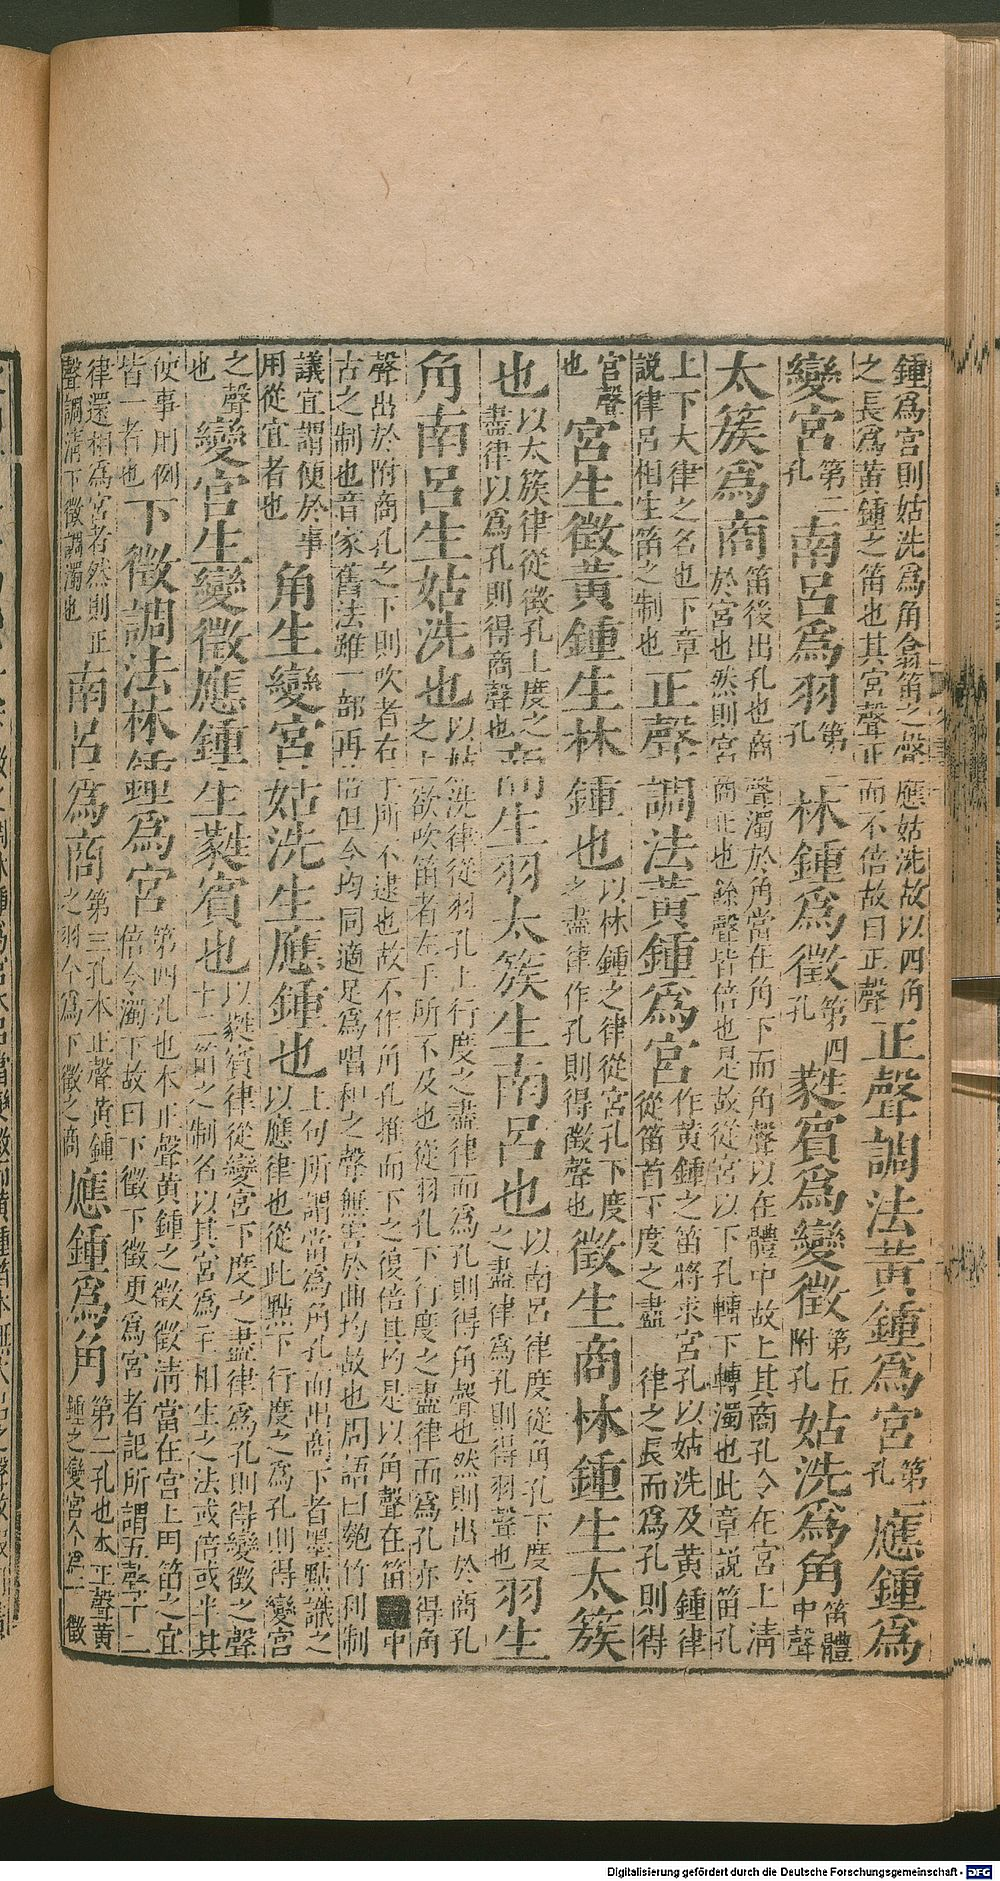 鍾爲宮則姑洗爲角翕笛之聲應姑洗故以四角之長爲黃鍾之笛也其宮聲正而不倍故曰正聲正聲調法黃鍾爲宮第一孔應鍾爲
變宮第二孔南呂爲羽第三孔林鍾爲徵第四孔蕤賓爲變徵第五附孔姑洗爲角笛體中聲
太簇爲商笛後出孔也商聲濁於角當在角下而角聲以在體中故上其商孔令在宮上清於宮也然則宮商正也餘聲皆倍也是故從宮以下孔轉下轉濁也此章說笛孔
上下大律之名也下章說律呂相生笛之制也正聲調法黃鍾爲宮作黃鍾之笛將求宮孔以姑洗及黃鍾律從笛首下度之盡律之長而爲孔則得
宮聲也宮生徵黃鍾生林鍾也以林鍾之律從宮孔下度之盡律作孔則得徵聲也徵生商林鍾生太簇
也以太簇律從徵孔上度之盡律以爲孔則得商聲也商生羽太簇生南呂也以南呂律度從角孔下度之盡律爲孔則得羽聲也羽生
角南呂生姑洗也以姑洗律從羽孔上行度之盡律而爲孔則得角聲也然則出於商孔之上欲吹笛者左手所不及也從羽孔下行度之盡律而爲孔亦得角
聲出於附商孔之下則吹者右手所不逮也故不作角孔推而下之復倍其均是以角聲在笛中古之制也音家舊法雖一部再倍但令均同適足爲唱和之聲無害於曲均故也周語曰匏竹利制
議宜謂便於事用從宜者也角生變宮姑洗生應鍾也上句所謂當爲角孔而出商下者墨點識之以應律也從此點下行度之爲孔則得變宮
之聲也變宮生變徵應鍾生蕤賓也以蕤賓律從變宮下度之盡律爲孔則得變徵之聲十二笛之制名以其宮爲主相生之法或倍或半其
便事用例皆一者也下徵調法林鍾爲宮第四孔也本正聲黃鍾之徵徵清當在宮上用笛之宜倍令濁下故曰下徵下徵更爲宮者記所謂五聲十二
律還相爲宮者然則正聲調清下徵調濁也南呂爲商第三孔本正聲黃鍾之羽今爲下徵之商應鍾爲角第二孔也本正聲黃鍾之變宮今爲下徵
Digitalisierung gefördert durch die Deutsche Forschungsgemeinschaft - DFG